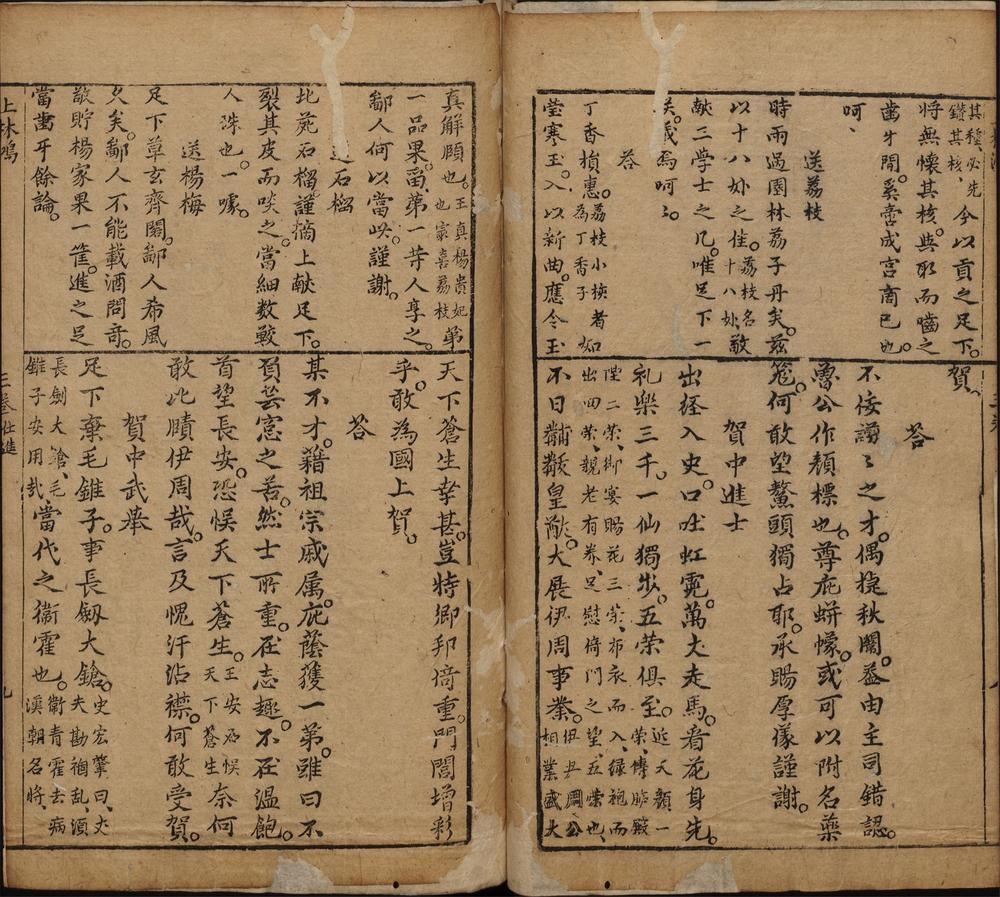 其種必先
鑽其核、今以貢之足下。
將無懷其核。與取而嚙之
齒牙間。奚啻成宮商已也。
呵、
送荔枝
時雨過園林荔子丹矣。茲
以十八妳之佳。荔枝名十八妳、敬
獻二學士之几。唯足下一
矣。義焉呵ミ。
荅
丁香損惠。荔枝小核者如為丁香子
瑩寒玉。入以新曲。應令玉
賀。
荅
不佞謭ミ之才。偶捷秋闈。益由主司錯認。
魯公作顏標也。尊庇蛢幪。或可以附名藥
笼。何敢望鰲頭獨占耶。承賜厚儀謹謝。
賀中進士
出経入史。口吐虹霓。萬丈走馬。看花身先。
礼樂三千。一仙獨步。五荣俱至。近天顏、一荣、傳臚殿
陛二荣、御宴賜花三荣、布衣而入、緑袍而
出四荣、親老有养、足慰倚門之望、五荣也、
不日黼黻皇猷。大展伊周事業。伊尹周公相業盛大
真解頤也。王真楊貴妃也家喜荔枝第
一品果。當第一等人享之。
鄙人何以當此。謹謝。
送石榴
北苑石榴。謹摘上献足下。
裂其皮而啖之。當細数鮫
人珠也。一噱。
送楊梅
足下草玄齊閣。鄙人希風
久矣。鄙人不能載酒問奇。
敬貯楊家果一筐。進之足
當齒牙餘論。
天下蒼生幸甚。豈特鄉邦倚重。門閭增彩
乎。敢為國上賀。
荅
某不才。藉祖宗戚属。庇蔭獲一第。雖曰不
負芸窓之苦。然士所重。在志趣。不在溫飽。
首望長安。恐悞天下蒼生。王安石悞天下蒼生奈何
敢比賾伊周哉。言及愧汗沾襟。何敢受賀。
賀中武舉
足下棄毛錐子。事長劔大鎗。史宏肇曰、丈夫勘禍亂、須
長劍大鎗、毛
錐子安用哉、當代之衞霍也。衞青霍去病漢朝名將
上林鴻
三卷仕進
九